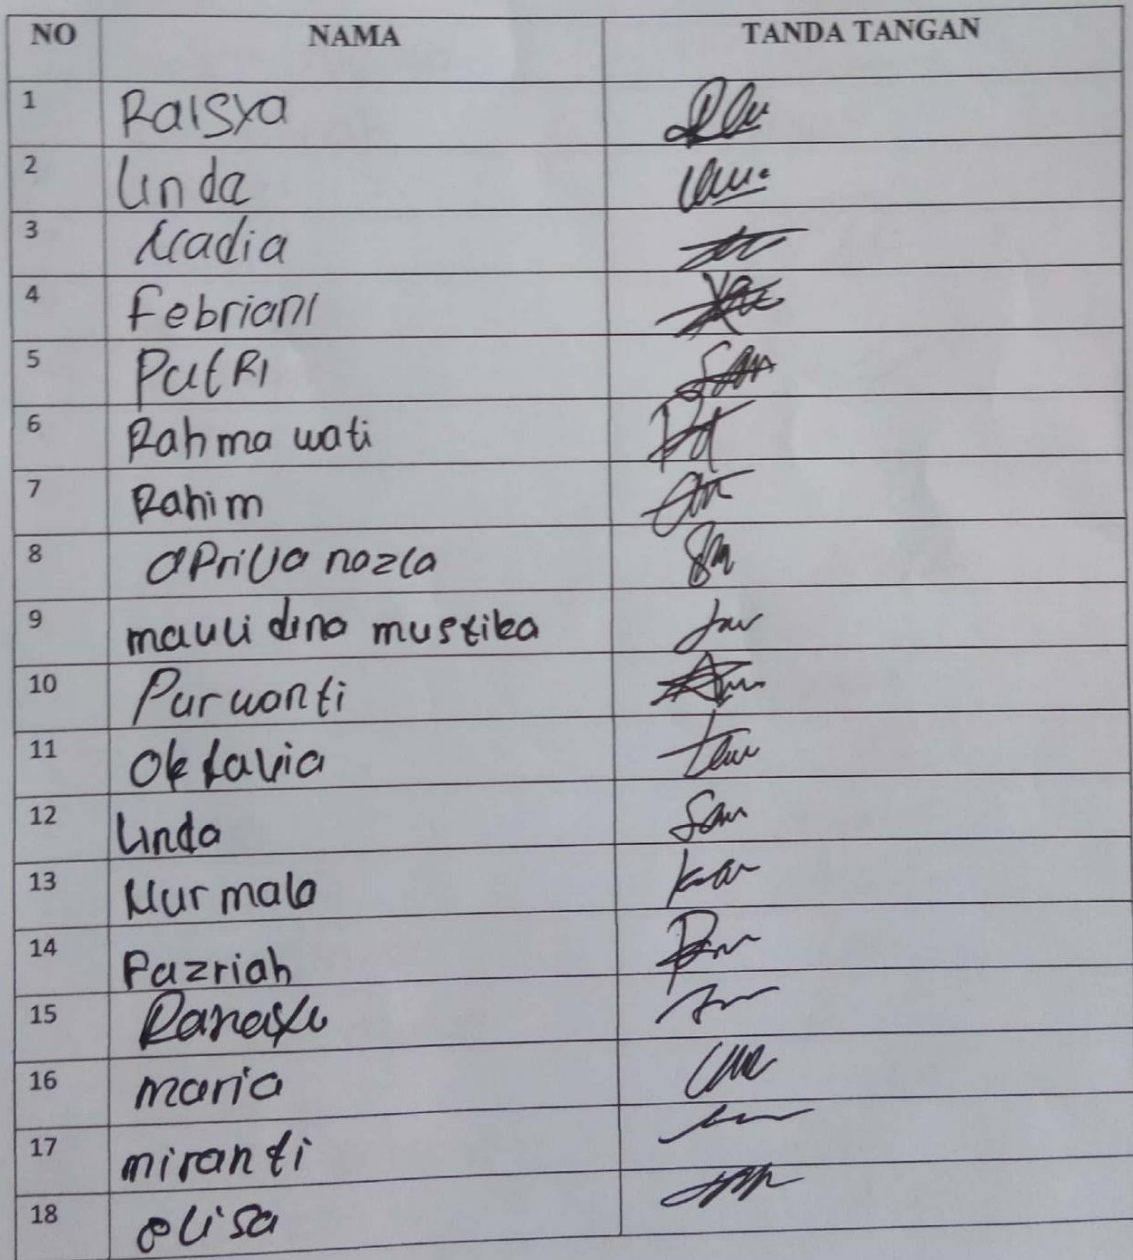 NO NAMA TANDA TANGAN
1 Raisya
2 Linda
3 Nadia
4 Febriani
5 Putri
6 Rahma wati
7 Rahim
8 aprilia nazla
9 mauli dina mustika
10 Purwanti
11 Oktavia
12 Linda
13 Nur mala
14 Fazriah
15
16 maria
17 miranti
18 elisa